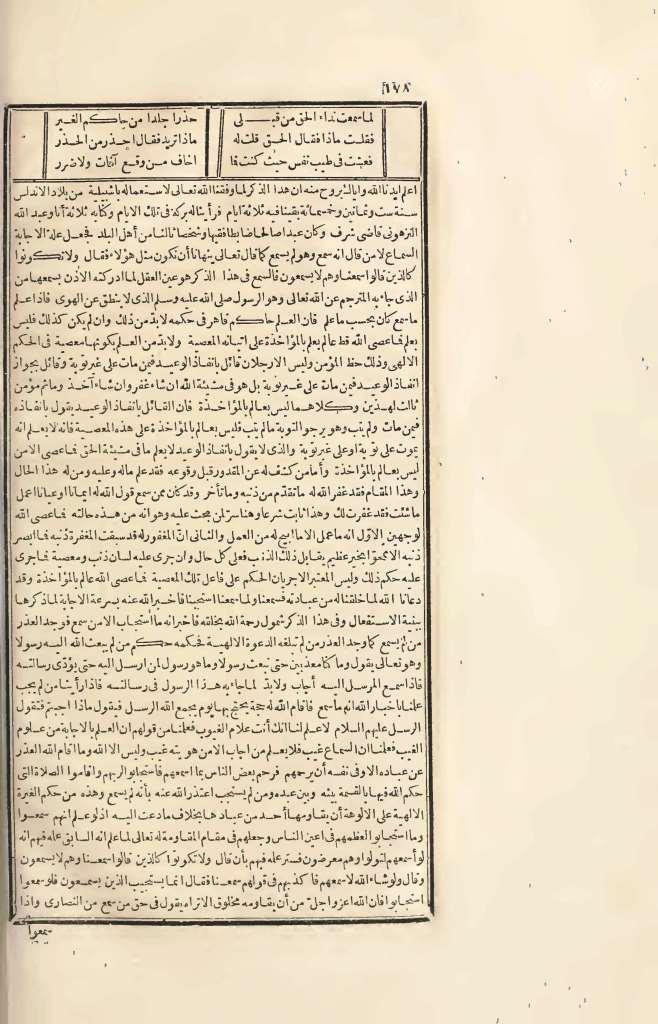 ١٧٨
لما سمعت نداء الحق من قبلي حذرا جلدا من حاكم الغير
فقلت ماذا فقال الحق قلت له ماذا تريد فقال احذر من الحذر
فعشت في طيب نفس حيث كنت فا اخاف من وقع آفات ولا ضرر
اعلم ايدنا الله واياك بروح منه ان هذا الذكر لما وفقنا الله تعالى لاستعماله باشبيلية من بلاد الاندلس
سنة ست وثمانين وخمسمائة بقينا فيه ثلاثة ايام فرأينا له بركة في تلك الايام وكنا به ثلاثة أنا وعبد الله
النزهوني قاضي شرف وكان عبدا صالحا ضابطا فقيها وشخصا ثالثا من أهل البلد فجعل علة الاجابة
السماع لا من قال انه سمع وهو لم يسمع كما قال تعالى ينهانا أن نكون مثل هؤلاء فقال ولا تكونوا
كالذين قالوا سمعنا وهم لا يسمعون فالسمع في هذا الذكر هو عين العقل لما ادركته الاذن بسمعها من
الذي جاء به المترجم عن الله تعالى وهو الرسول صلى الله عليه وسلم الذي لا ينطق عن الهوى فاذا علم
ما سمع كان بحسب ما علم فان العلم حاكم قاهر في حكمه لابد من ذلك وان لم يكن كذلك فليس
بعلم فما عصى الله قط عالم يعلم بالمؤاخذة على اتيانه المعصية ولابد من العلم بكونها معصية في الحكم
الالهي وذلك حظ المؤمن وليس الا رجلان قائل بانفاذ الوعيد فمن مات على غير توبة وقائل بجواز
انفاذ الوعيد فمن مات على غير توبة بل هو في مشيئة الله ان شاء غفر وان شاء آخذ وما ثم مؤمن
ثالث لهذين وكلاهما ليس بعالم بالمؤاخذة فان القائل بانفاذ الوعيد يقول بانفاذه
فيمن مات ولم يتب وهو يرجو التوبة ما لم يتب فليس بعالم بالمؤاخذة على هذه المعصية فانه لا يعلم انه
يموت على توبة او على غير توبة والذي لا يقول بانفاذ الوعيد لا يعلم ما في مشيئة الحق فما عصى الا من
ليس بعالم بالمؤاخذة وأما من كشف له عن المقدور قبل وقوعه فقد علم ماله وعليه ومن له هذا الحال
وهذا المقام فقد غفر الله له ما تقدم من ذنبه وما تأخر وقد كان ممن سمع قول الله له ايمانا او عيانا اعمل
ما شئت فقد غفرت لك وهذا ثابت شرعا وهنا سر لمن بحث عليه وهو انه من هذه حالته فما عصى الله
لوجهين الاول انه ما عمل الا ما ابيح له من العمل والثاني ان المغفور له قد سبقت المغفرة ذنبه فما ابصر
ذنبه الا ممحوا بخير عظيم يقابل ذلك الذنب فعلى كل حال وان جرى عليه لسان ذنب ومعصية فما جرى
عليه حكم ذلك وليس المعتبر الا جريان الحكم على فاعل تلك المعصية فما عصى الله عالم بالمؤاخذة وقد
دعانا الله لما خلقنا له من عبادته فسمعنا ولما سمعنا استجبنا فاخبر الله عنه بسرعة الاجابة لما ذكرها
ببنية الاستفعال وفي هذا الذكر شمول رحمة الله بخلقه فاخبر انه ما استجاب الا من سمع فوجد العذر
من لم يسمع كما وجد العذر من لم تبلغه الدعوة الالهية فحكمه حكم من لم يبعث الله اليه رسولا
وهو تعالى يقول وما كنا معذبين حتى نبعث رسولا وما هو رسول لمن ارسل اليه حتى يؤدى رسالته
فاذا سمع المرسل اليه أجاب ولابد لما جاء به هذا الرسول في رسالته فاذا رأينا من لم يجب
علمنا باخبار الله انه ما سمع فاقام الله له حجة يحتج بها يوم يجمع الله الرسل فيقول ماذا اجبتم فتقول
الرسل عليهم السلام لا علم لنا انك أنت علام الغيوب فعلمنا من قولهم ان العلم بالاجابة من علوم
الغيب فعلمنا ان السماع غيب فلا يعلم من اجاب الا من هويته غيب وليس الا الله وما اقام الله العذر
عن عباده الا وفي نفسه أن يرحمهم فرحم بعض الناس بما اسمعهم فاستجابوا لربهم واقاموا الصلاة التي
حكم الله فيها بالقسمة بينه وبين عبده ومن لم يستجب اعتذر الله عنه بأنه لم يسمع وهذه من حكم الغيرة
الالهية على الالوهة أن يقاومها أحد من عبادها بخلاف ما دعت اليه اذ لو علم انهم سمعوا
وما استجابوا لعظمهم في اعين الناس وجعلهم في مقام المقاومة له تعالى لما علم انه السابق علمه فيهم انه
لو أسمعهم لتولوا وهم معرضون فستر علمه فيهم بأن قال ولا تكونوا كالذين قالوا سمعنا وهم لا يسمعون
وقال ولو شاء الله لاسمعهم فاكذبهم في قولهم سمعنا فقال انما يستجيب الذين يسمعون فلو سمعوا
استجابوا فان الله اعز واجل من أن يقاومه مخلوق الا تراه يقول في حق من سمع من النصارى واذا
سمعوا